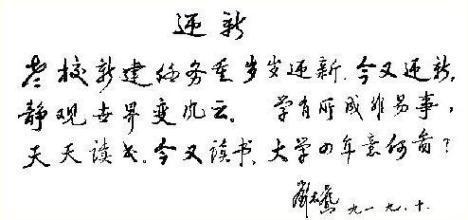 迎新
老校新建任务重岁岁迎新.今又迎新,
静观世界变风云. 学有所成非易事,
天天读书.今又读书,大学四年意何图?
九一.九.十.